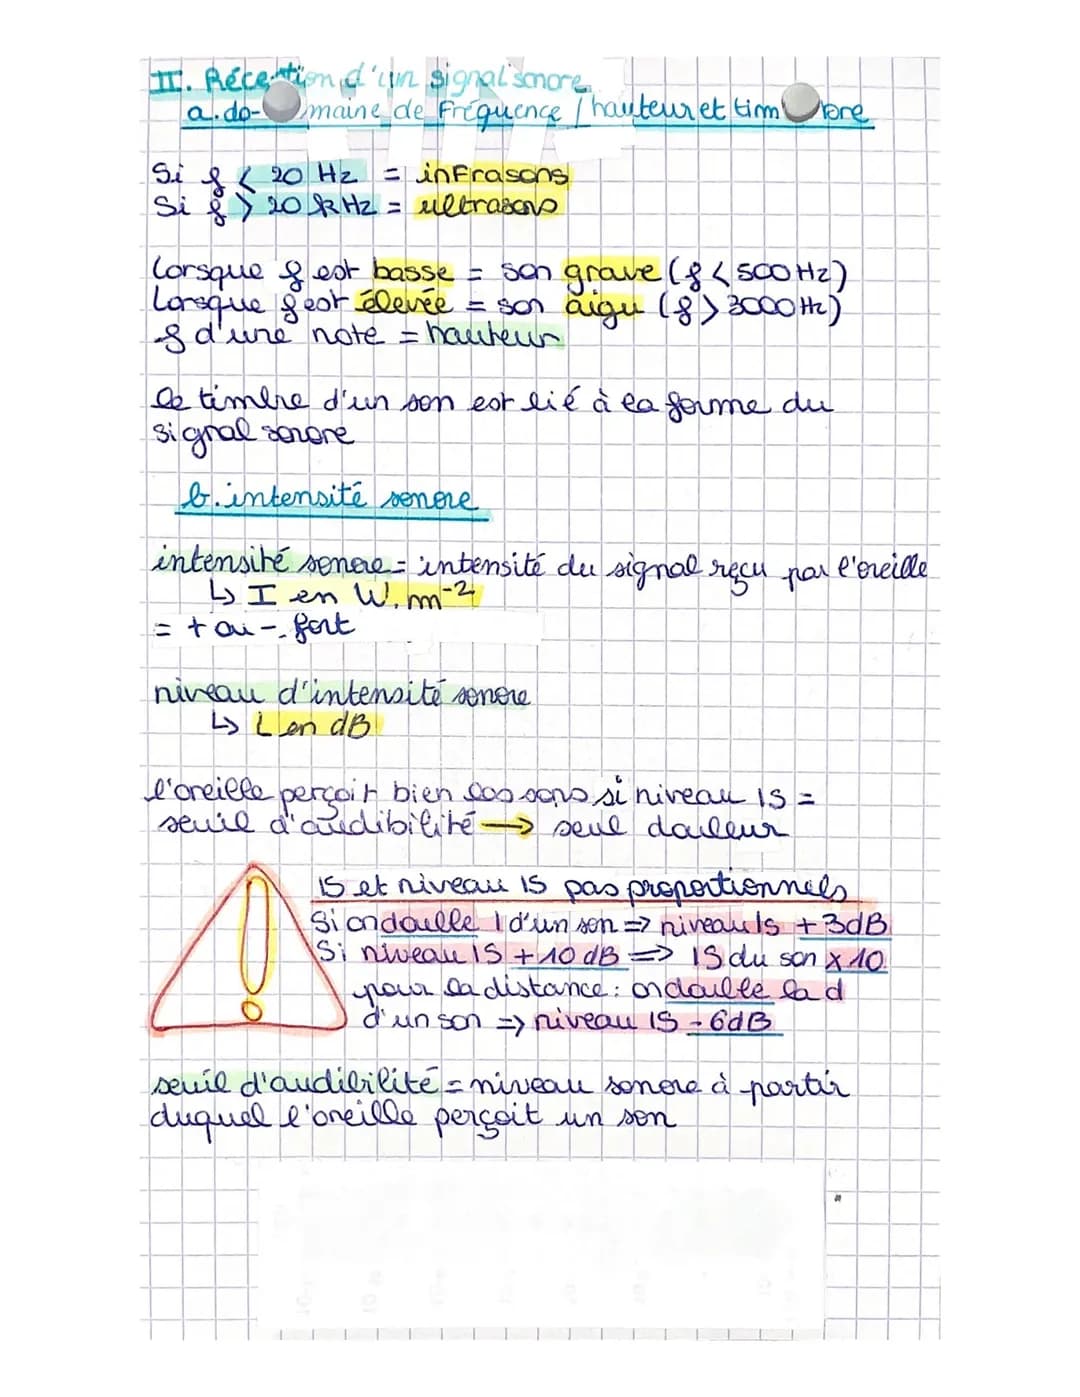 II. Réception d'un signal sonore
a. do-maine de Fréquence / hauteur et timbre
Si f < 20 Hz = infrasons
Si f > 20 kHz = ultrasons
Lorsque f est basse = son grave (f < 500 Hz)
Lorsque f est élevée = son aigu (f > 3000 Hz)
f d'une note = hauteur
le timbre d'un son est lié à la forme du
signal sonore
b. intensité sonore
intensité sonore = intensité du signal reçu par l'oreille
↳ I en W.m⁻²
= + ou - fort
niveau d'intensité sonore
↳ L en dB
l'oreille perçoit bien les sons si niveau IS =
seuil d'audibilité → seuil douleur
IS et niveau IS pas proportionnels
Si on double I d'un son => niveau Is + 3dB
Si niveau IS + 10 dB => IS du son x 10
pour la distance : on double la d
d'un son => niveau IS - 6dB
seuil d'audibilité = niveau sonore à partir
duquel l'oreille perçoit un son